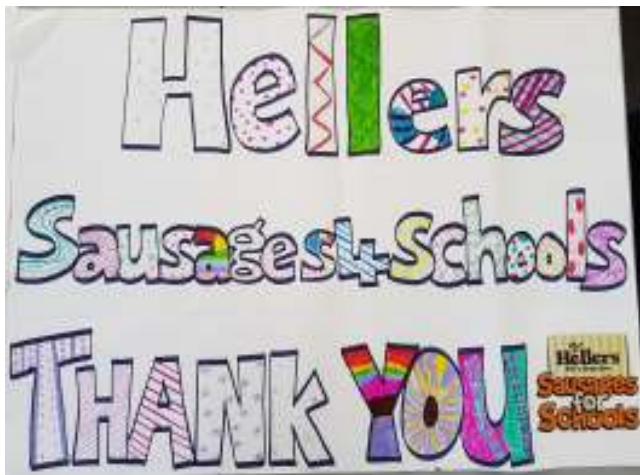 Hellers
Sausages4Schools
THANK YOU
Hellers
Sausages
for
Schools